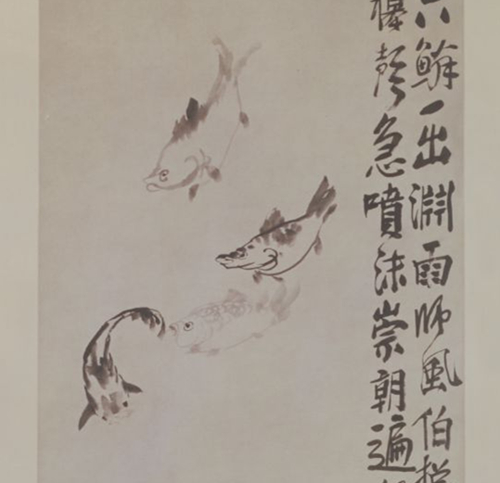 六鱗一出淵雨師風伯
槔聲急噴沫崇朝遍